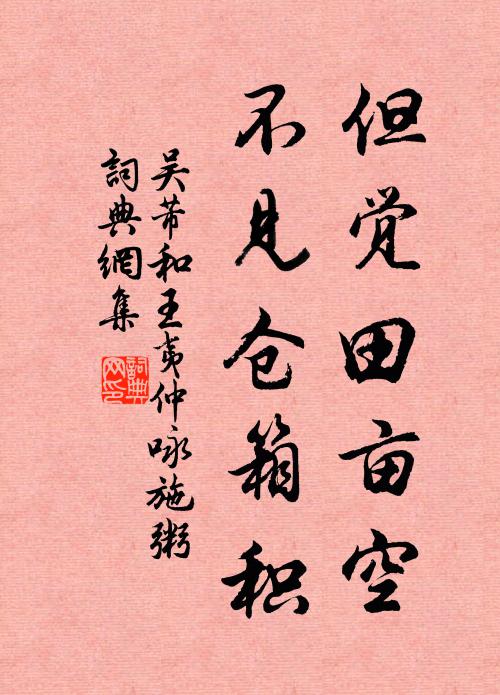 但觉田亩空
不见仓箱积
吴芾和王夷仲咏施粥
詞典網集
詞典
网印